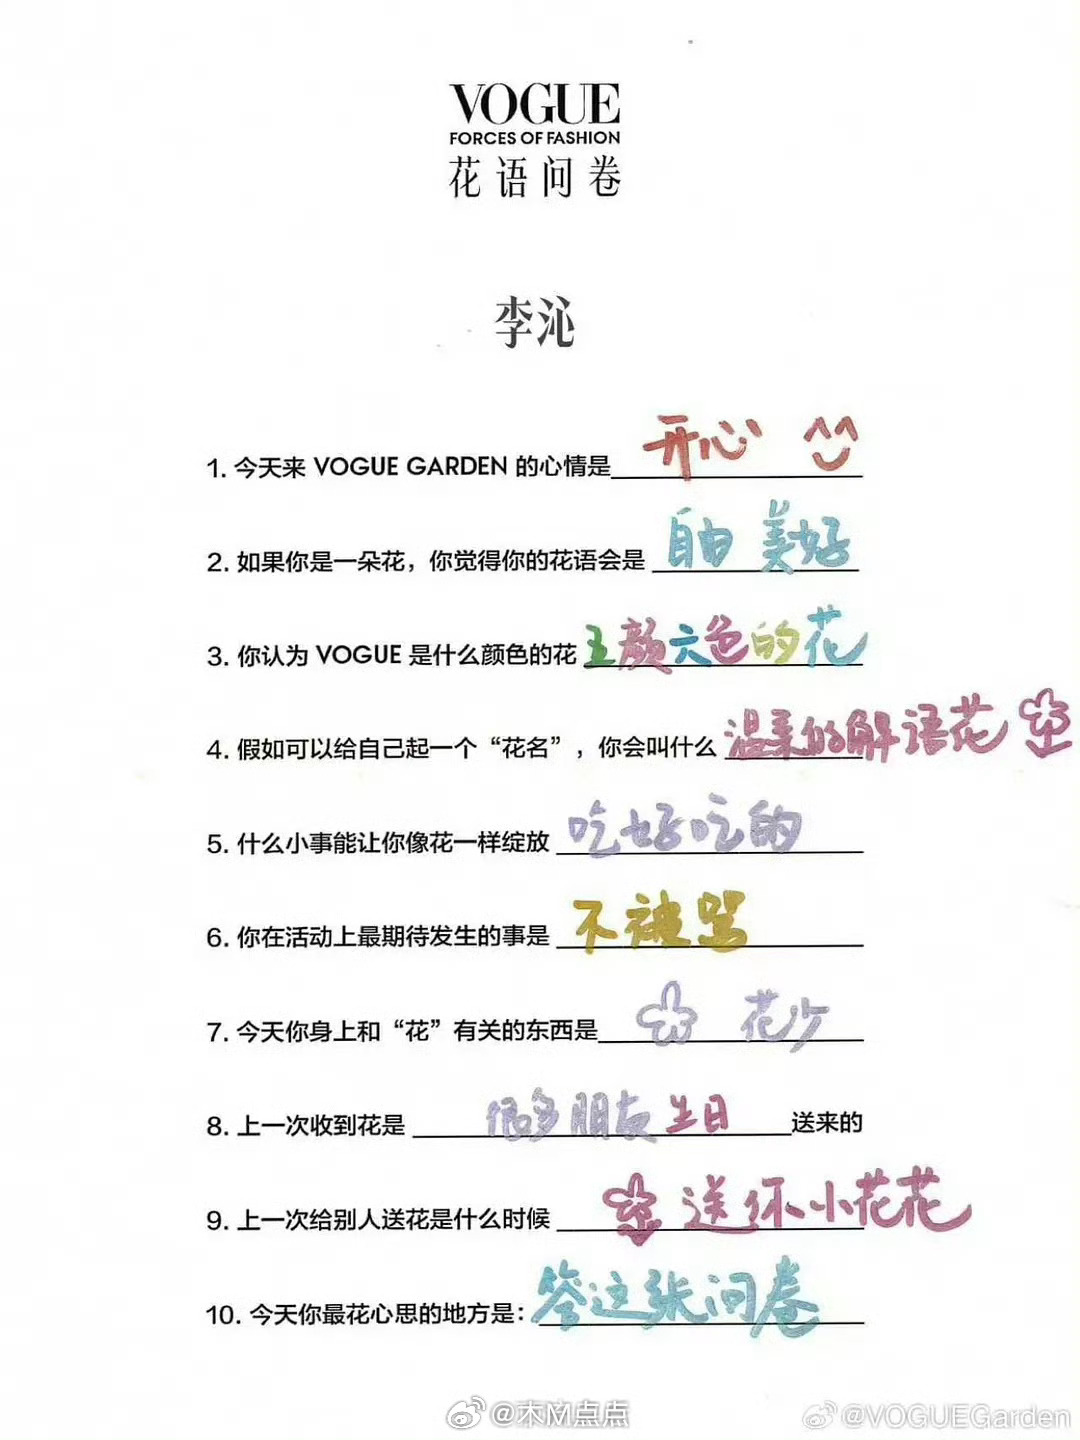 VOGUE
FORCES OF FASHION
花语问卷
李沁
1. 今天来 VOGUE GARDEN 的心情是 开心 ^^
2. 如果你是一朵花，你觉得你的花语会是 自由 美好
3. 你认为 VOGUE 是什么颜色的花 五颜六色的花
4. 假如可以给自己起一个“花名”，你会叫什么 温柔的解语花
5. 什么小事能让你像花一样绽放 吃好吃的
6. 你在活动上最期待发生的事是 不被骂
7. 今天你身上和“花”有关的东西是 花少
8. 上一次收到花是 很多朋友生日 送来的
9. 上一次给别人送花是什么时候 送你小花花
10. 今天你最花心思的地方是： 答这张问卷
@木M点点 @VOGUEGarden